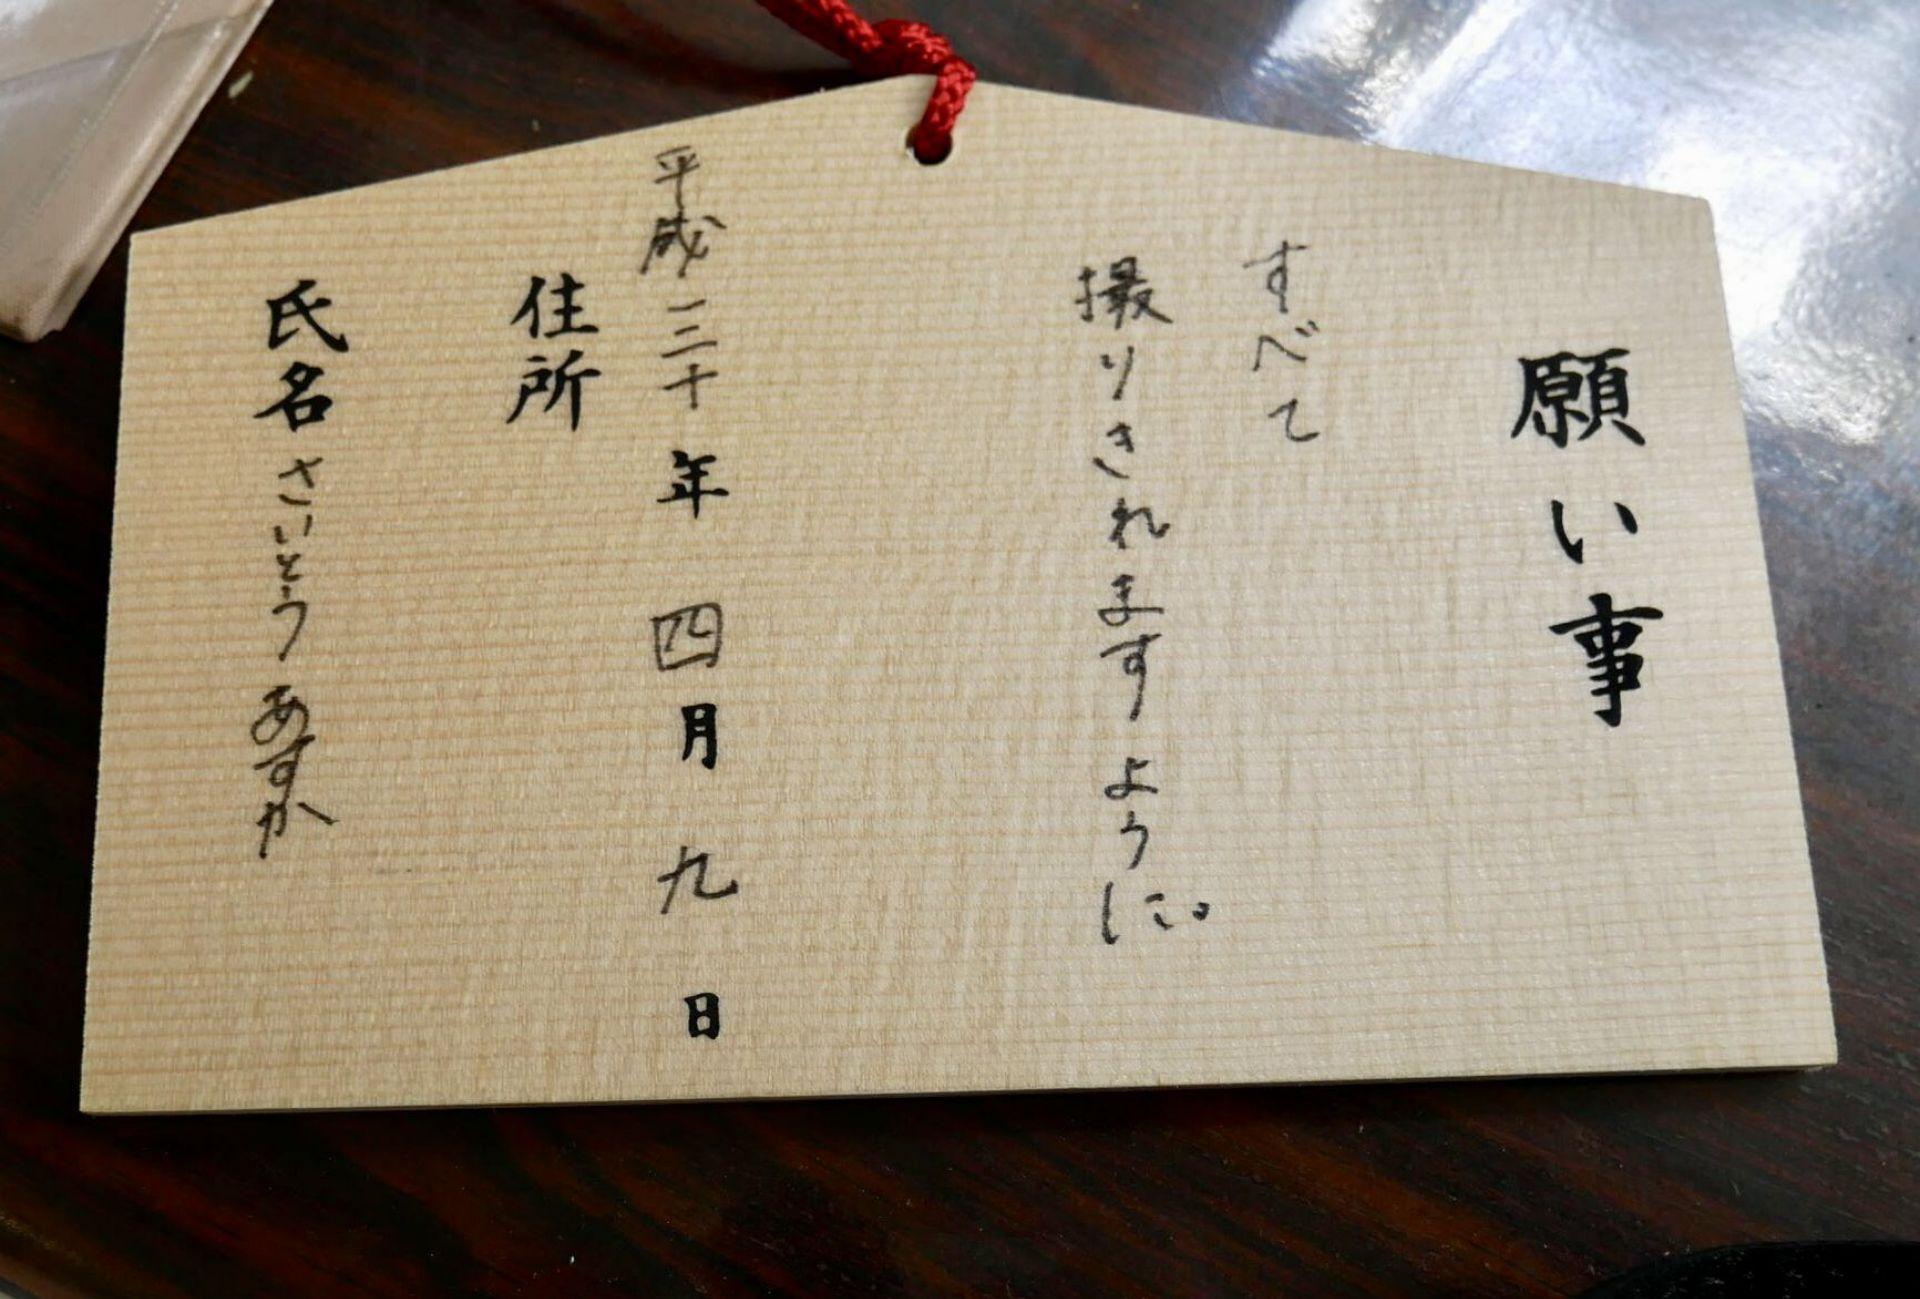 願い事
すべて
撮りきれますように。
平成三十年四月九日
住所
氏名さいとうあすか